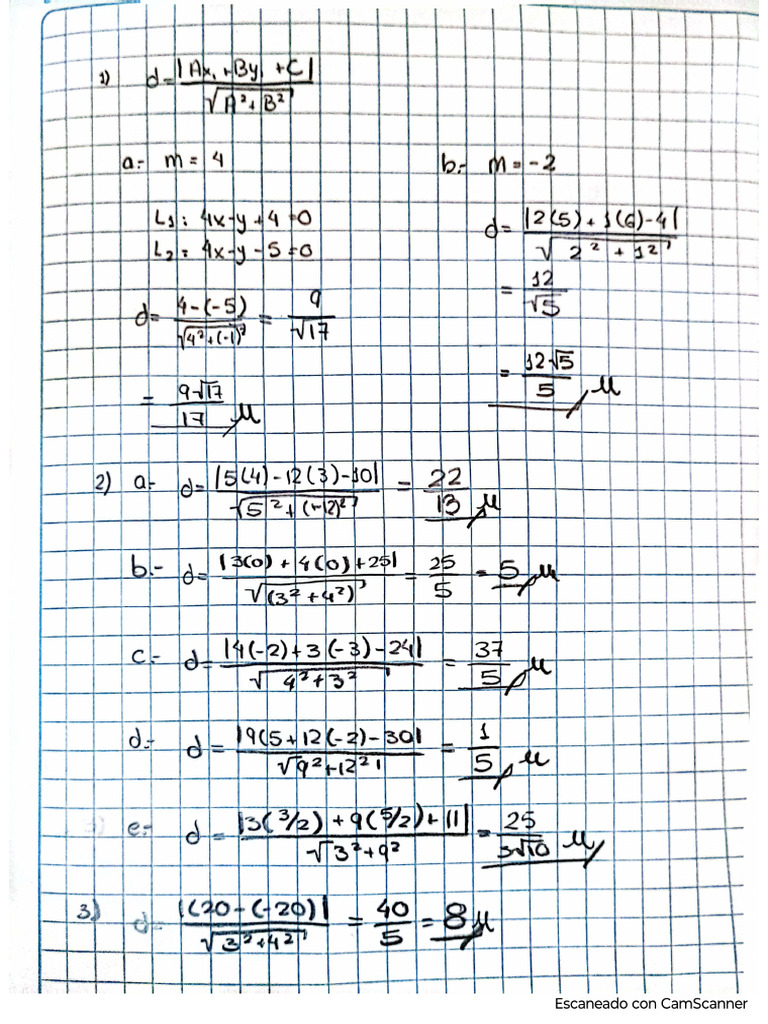 1) d = |Ax₁ + By₁ + C| / √(A² + B²)
a.- m = 4
L₁: 4x - y + 4 = 0
L₂: 4x - y - 5 = 0
d = 4 - (-5) / √(4² + (-1)²) = 9 / √17
= 9√17 / 17 μ
b.- m = -2
d = |2(5) + 1(6) - 4| / √(2² + 1²)
= 12 / √5
= 12√5 / 5 μ
2) a.- d = |5(4) - 12(3) - 10| / √(5² + (-12)²) = 22 / 13 μ
b.- d = |3(0) + 4(0) + 25| / √(3² + 4²) = 25 / 5 = 5 μ
c.- d = |4(-2) + 3(-3) - 24| / √(4² + 3²) = 37 / 5 μ
d.- d = |9(5 + 12(-2) - 30| / √(9² + 12²) = 1 / 5 μ
e.- d = |3(3/2) + 9(5/2) + 11| / √(3² + 9²) = 25 / 3√10 μ
3) d = |(20 - (-20)| / √(3² + 4²) = 40 / 5 = 8 μ
Escaneado con CamScanner